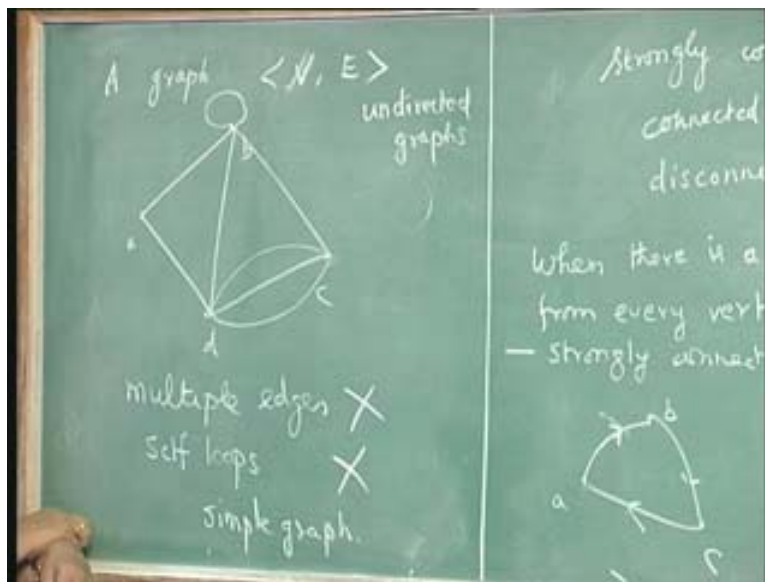 A graph <N, E>
undirected
graphs
b
a
c
d
multiple edges X
self loops X
simple graph.
strongly co
connected
disconne
When there is a
from every vert
— strongly connect
b
a
c